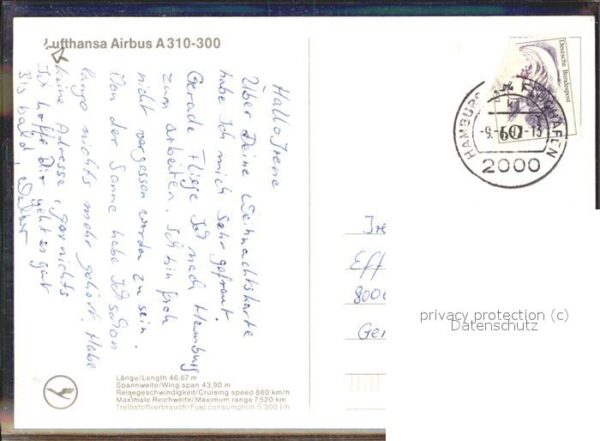 Lufthansa Airbus A310-300
Hallo Irene
Über Deine Weihnachtskarte
habe Ich mich Sehr gefreut.
Gerade Fliege Ich nach Hamburg
zum arbeiten. Ich bin froh
nicht vergessen worden zu sein.
Von der Sanne habe Ich schon
lange nichts mehr gehört. Habe
keine Adresse, gar nichts
Ich hoffe Dir geht es gut
Bis bald,
Deutsche Bundespost
HAMBURG FLUGHAFEN
2000
60
Eff
800
Ger
privacy protection (c)
Datenschutz
Länge/Length 46,67 m
Spannweite/Wing span 43,90 m
Reisegeschwindigkeit/Cruising speed 860 km/h
Maximale Reichweite/Maximum range 7.520 km
Treibstoffverbrauch/Fuel consumption 5.300 l/h